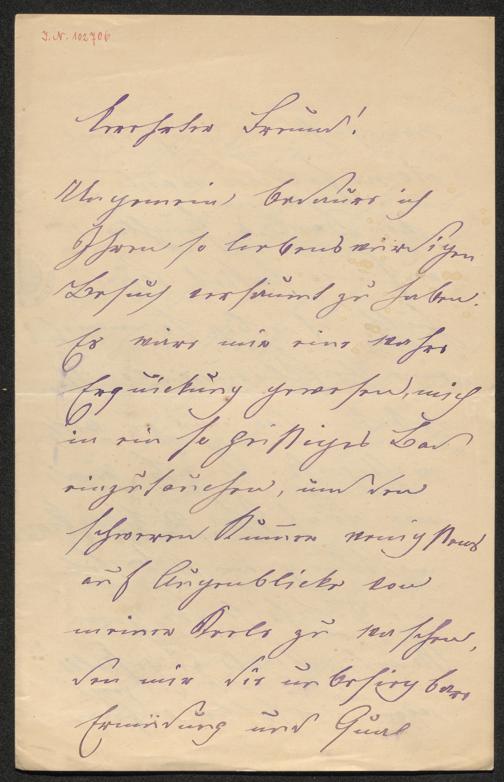 J.N. 102706
Verehrter Freund!
Ungemein bedaure ich
Ihren so liebenswürdigen
Besuch versäumt zu haben.
Es wäre mir eine wahre
Erquickung gewesen, mich
in ein so geistiges Bad
einzutauchen, und den
schweren Kummer wenigstens
auf Augenblicke von
meiner Seele zu waschen,
den mir die unbesiegbare
Ermüdung und Qual